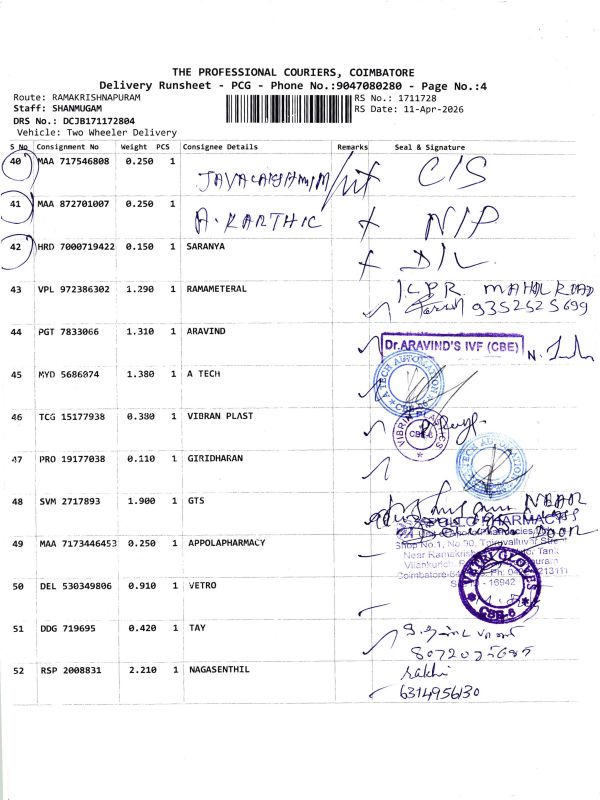 THE PROFESSIONAL COURIERS, COIMBATORE
Delivery Runsheet - PCG - Phone No.:9047080280 - Page No.:4
Route: RAMAKRISHNAPURAM
RS No.: 1711728
Staff: SHANMUGAM
RS Date: 11-Apr-2026
DRS No.: DCJB171172804
Vehicle: Two Wheeler Delivery
S No Consignment No Weight PCS Consignee Details Remarks Seal & Signature
40 MAA 717546808 0.250 1 C/S
41 MAA 872701007 0.250 1 A. KARTHIC N/P
42 HRD 7000719422 0.150 1 SARANYA D/L
43 VPL 972386302 1.290 1 RAMAMETERAL
MAHAL ROAD
9352525699
44 PGT 7833066 1.310 1 ARAVIND
Dr.ARAVIND'S IVF (CBE)
45 MYD 5686074 1.380 1 A TECH
A TECH AUTOMATION
46 TCG 15177938 0.380 1 VIBRAN PLAST
CBE-6
47 PRO 19177038 0.110 1 GIRIDHARAN
48 SVM 2717893 1.900 1 GTS
49 MAA 7173446453 0.250 1 APPOLAPHARMACY
PHARMACY
Shop No.1, No.50,
Near
50 DEL 530349806 0.910 1 VETRO
GLOVES
CBE-6
51 DDG 719695 0.420 1 TAY
52 RSP 2008831 2.210 1 NAGASENTHIL
rakhi
6314956130